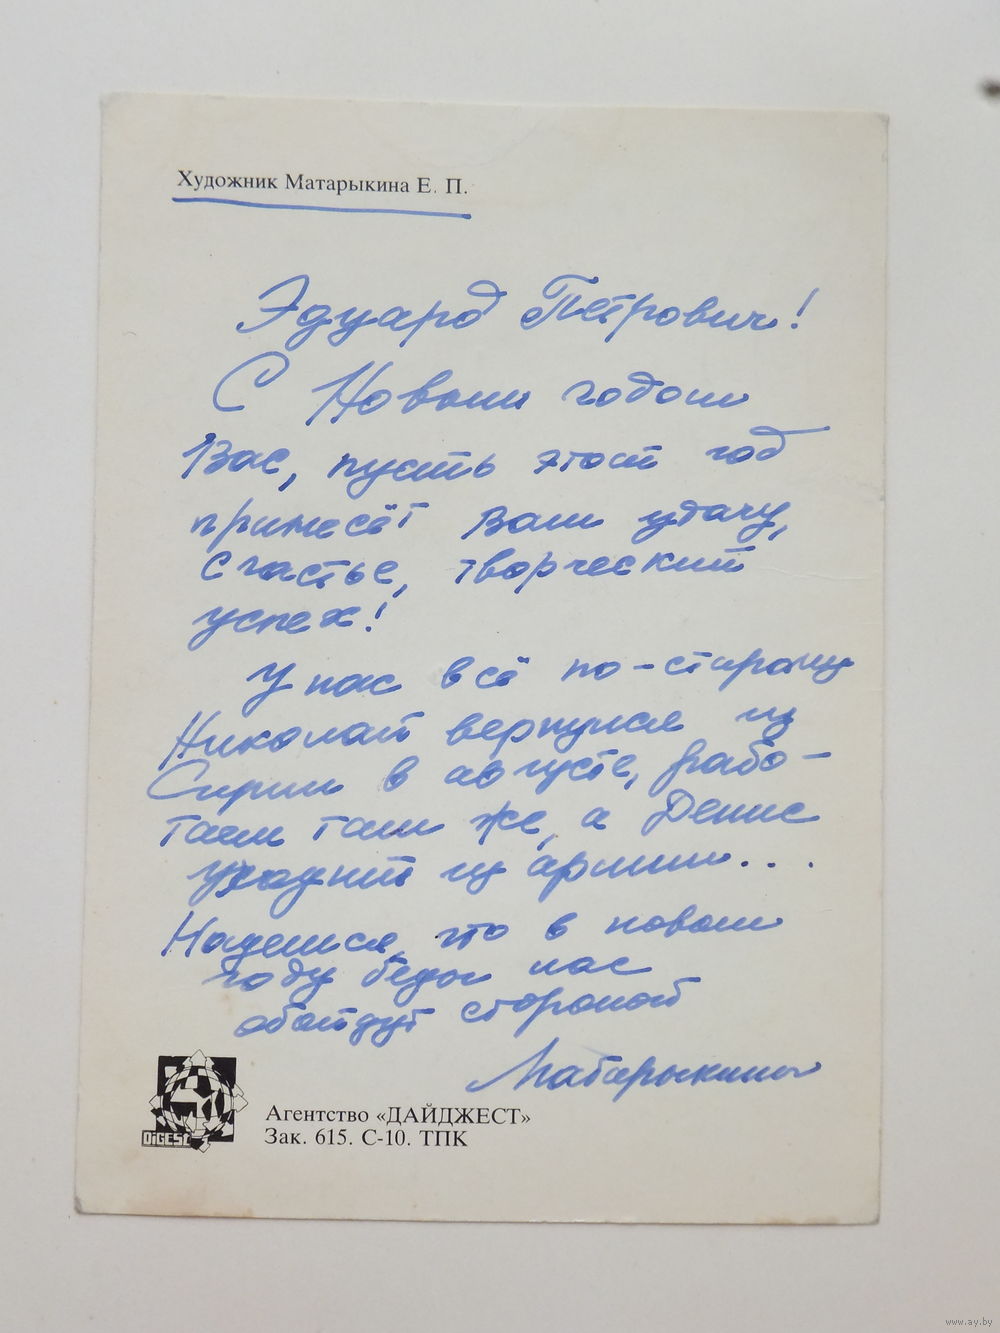 Художник Матарыкина Е. П.
Эдуард Петрович!
С Новым годом
Вас, пусть этот год
принесёт Вам удачу,
счастье, творческий
успех!
У нас всё по-старому
Николай вернулся из
Сирии в августе, рабо-
таем там же, а Денис
уходит из армии...
Надеемся, что в новом
году беды нас
обойдут стороной
Матарыкины
DiGEST
Агентство «ДАЙДЖЕСТ»
Зак. 615. С-10. ТПК
www.ay.by